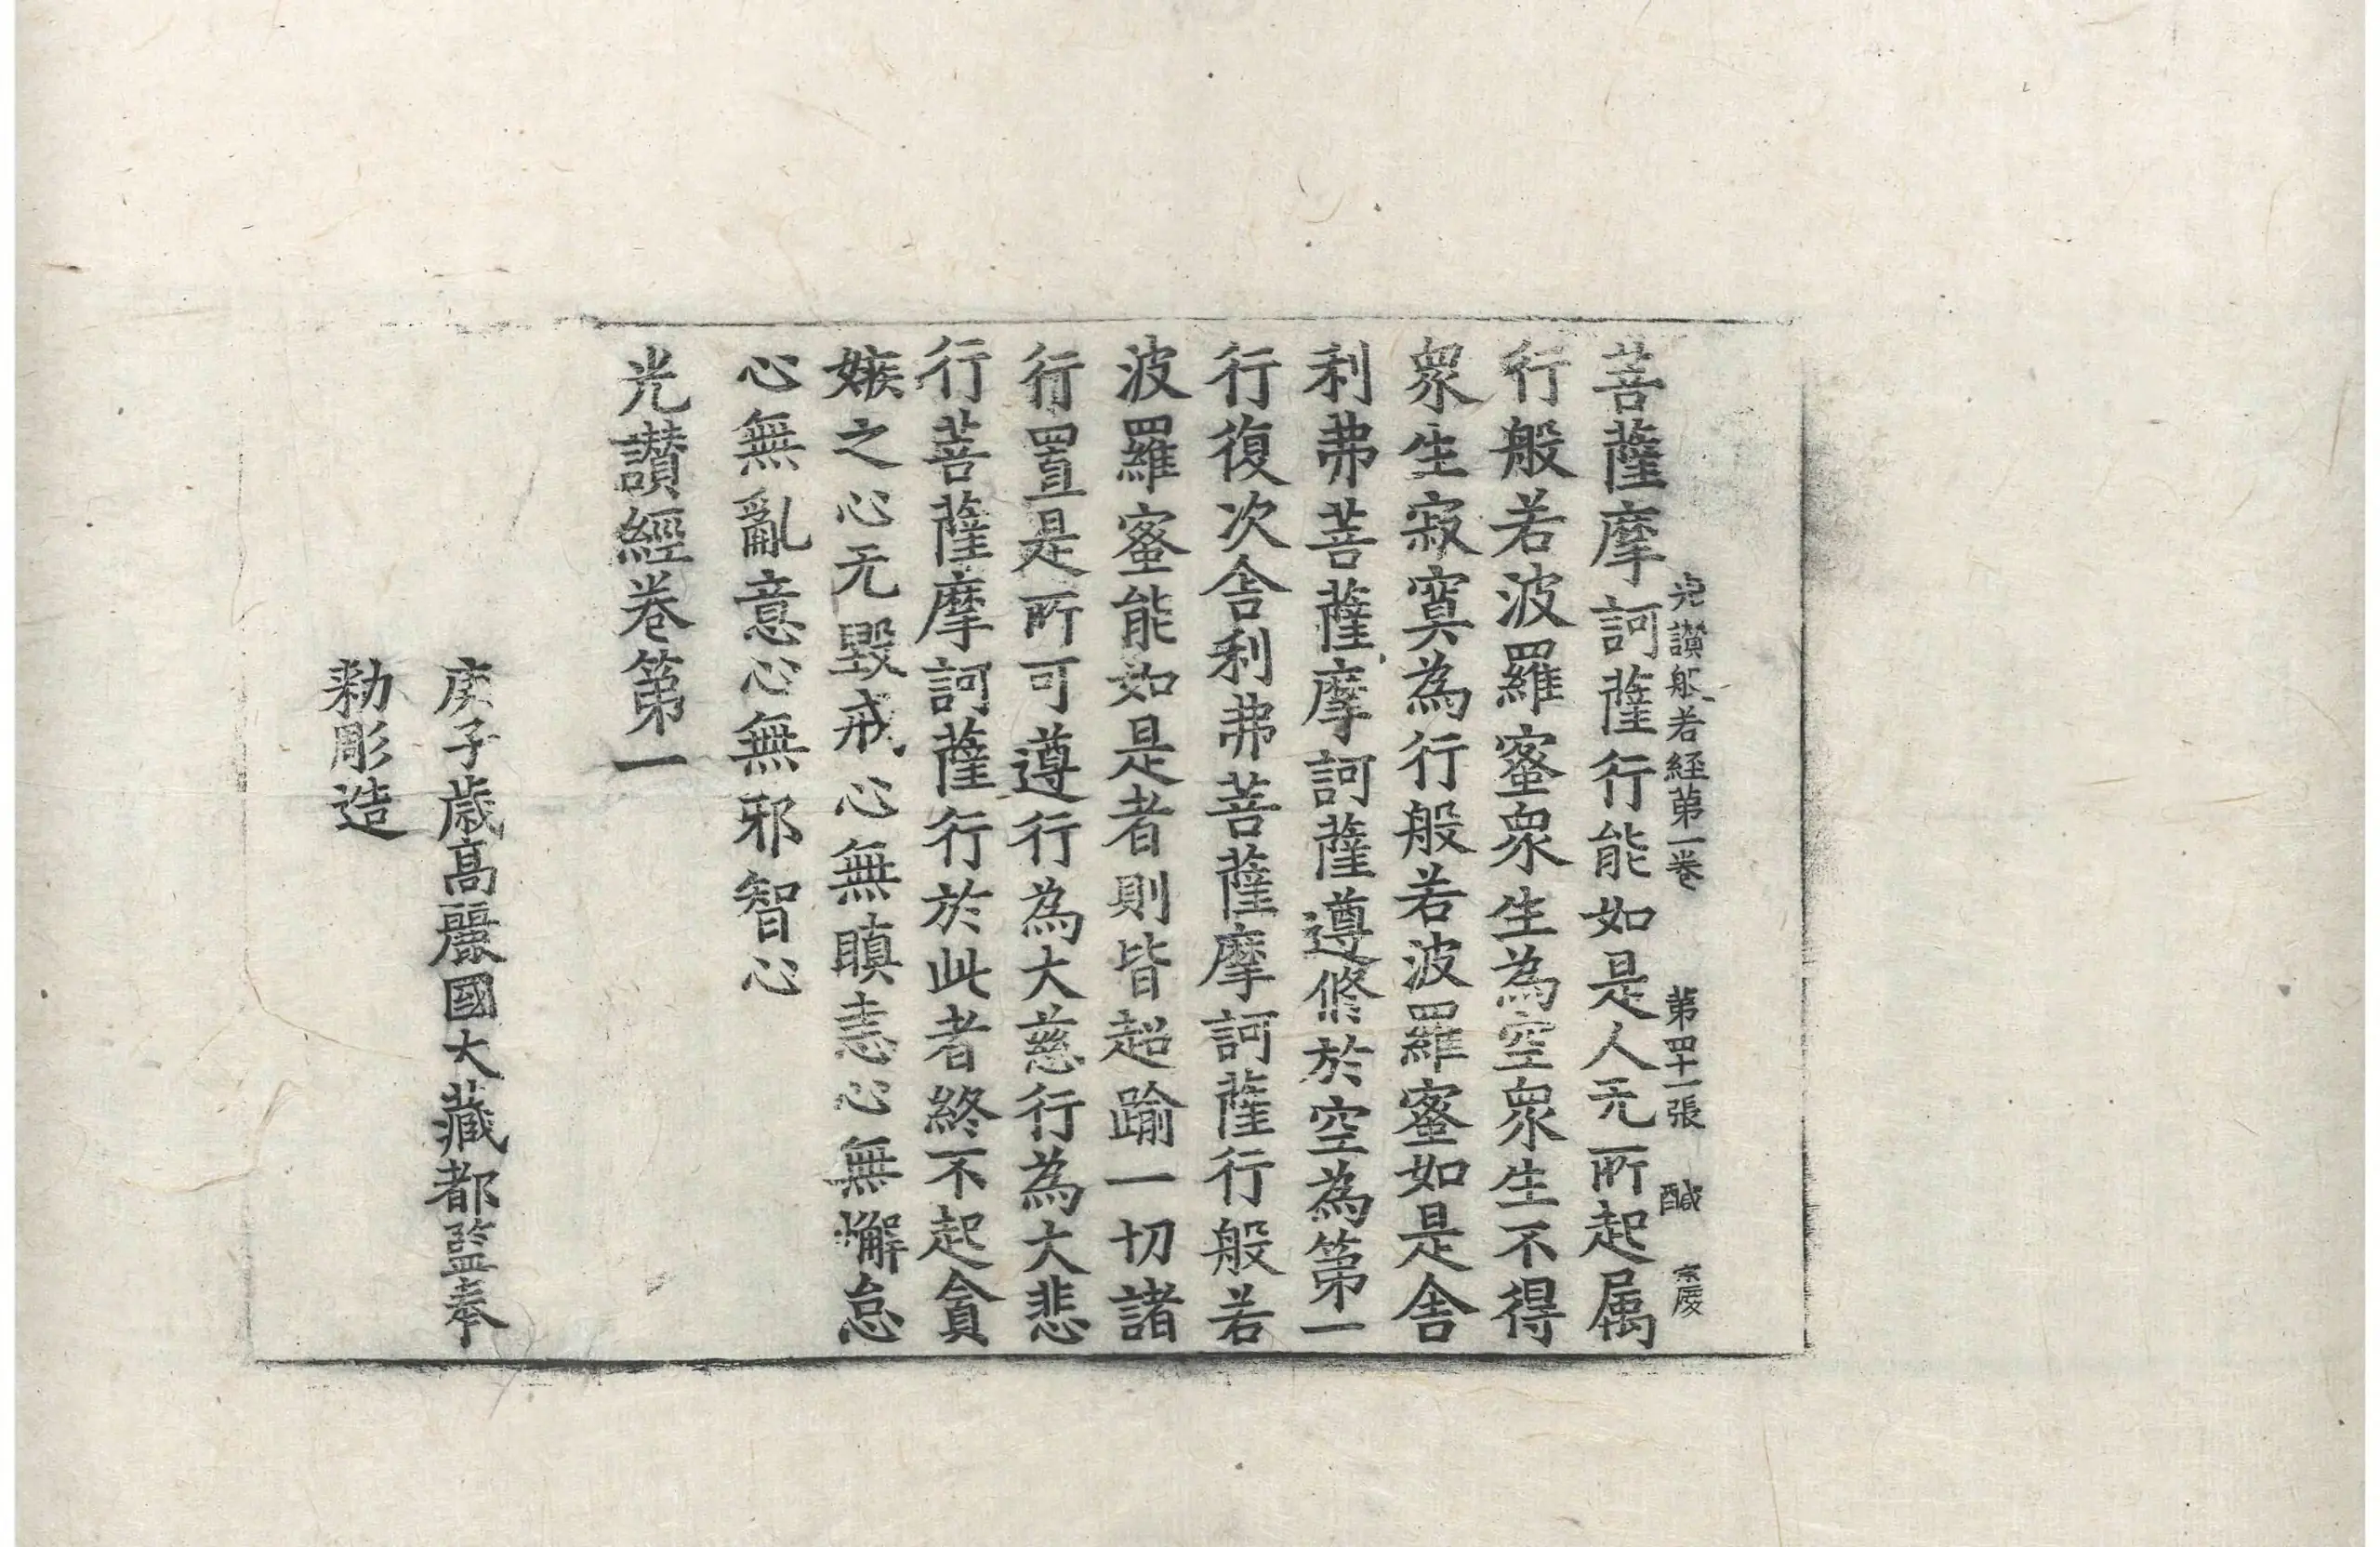 光讃般若経第一卷 第四十一張 醎
菩薩摩訶薩行能如是人无所起屬
行般若波羅蜜衆生為空衆生不得
衆生寂寞為行般若波羅蜜如是舎
利弗菩薩摩訶薩遵修於空為第一
行復次舎利弗菩薩摩訶薩行般若
波羅蜜能如是者則皆超踰一切諸
行置是所可遵行為大慈行為大悲
行菩薩摩訶薩行於此者終不起貪
嫉之心无毀戒心無瞋恚心無懈怠
心無亂意心無邪智心
光讃經卷第一
庚子歳高麗國大藏都監奉
勑彫造